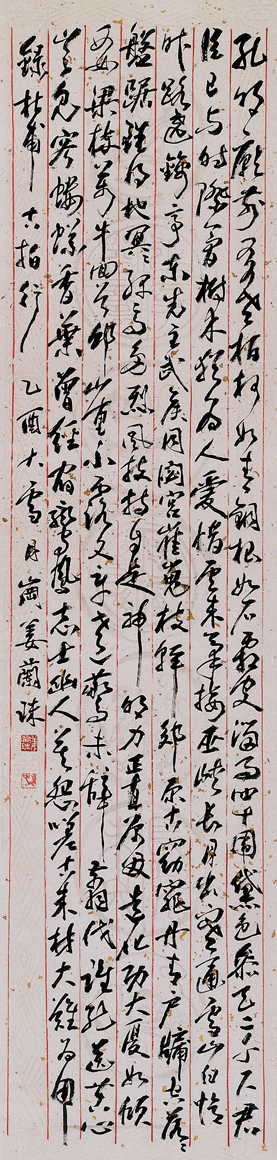 孔明廟前有老柏柯如青銅根如石霜皮溜雨四十圍黛色參天二千尺君
臣已與時際會樹木猶為人愛惜雲來氣接巫峽長月出寒通雪山白憶
昨路遶錦亭東先主武侯同閟宮崔嵬枝幹郊原古窈窕丹青戶牖空落々
盤踞雖得地冥々孤高多烈風扶持自是神明力正直原因造化功大廈如傾
要梁棟萬牛回首邱山重不露文章世已驚未辭翦伐誰能送苦心
豈免容螻蟻香葉曾經宿鸞鳳志士幽人莫怨嗟古來材大難為用
錄杜甫古柏行乙酉大雪姜蘭珠